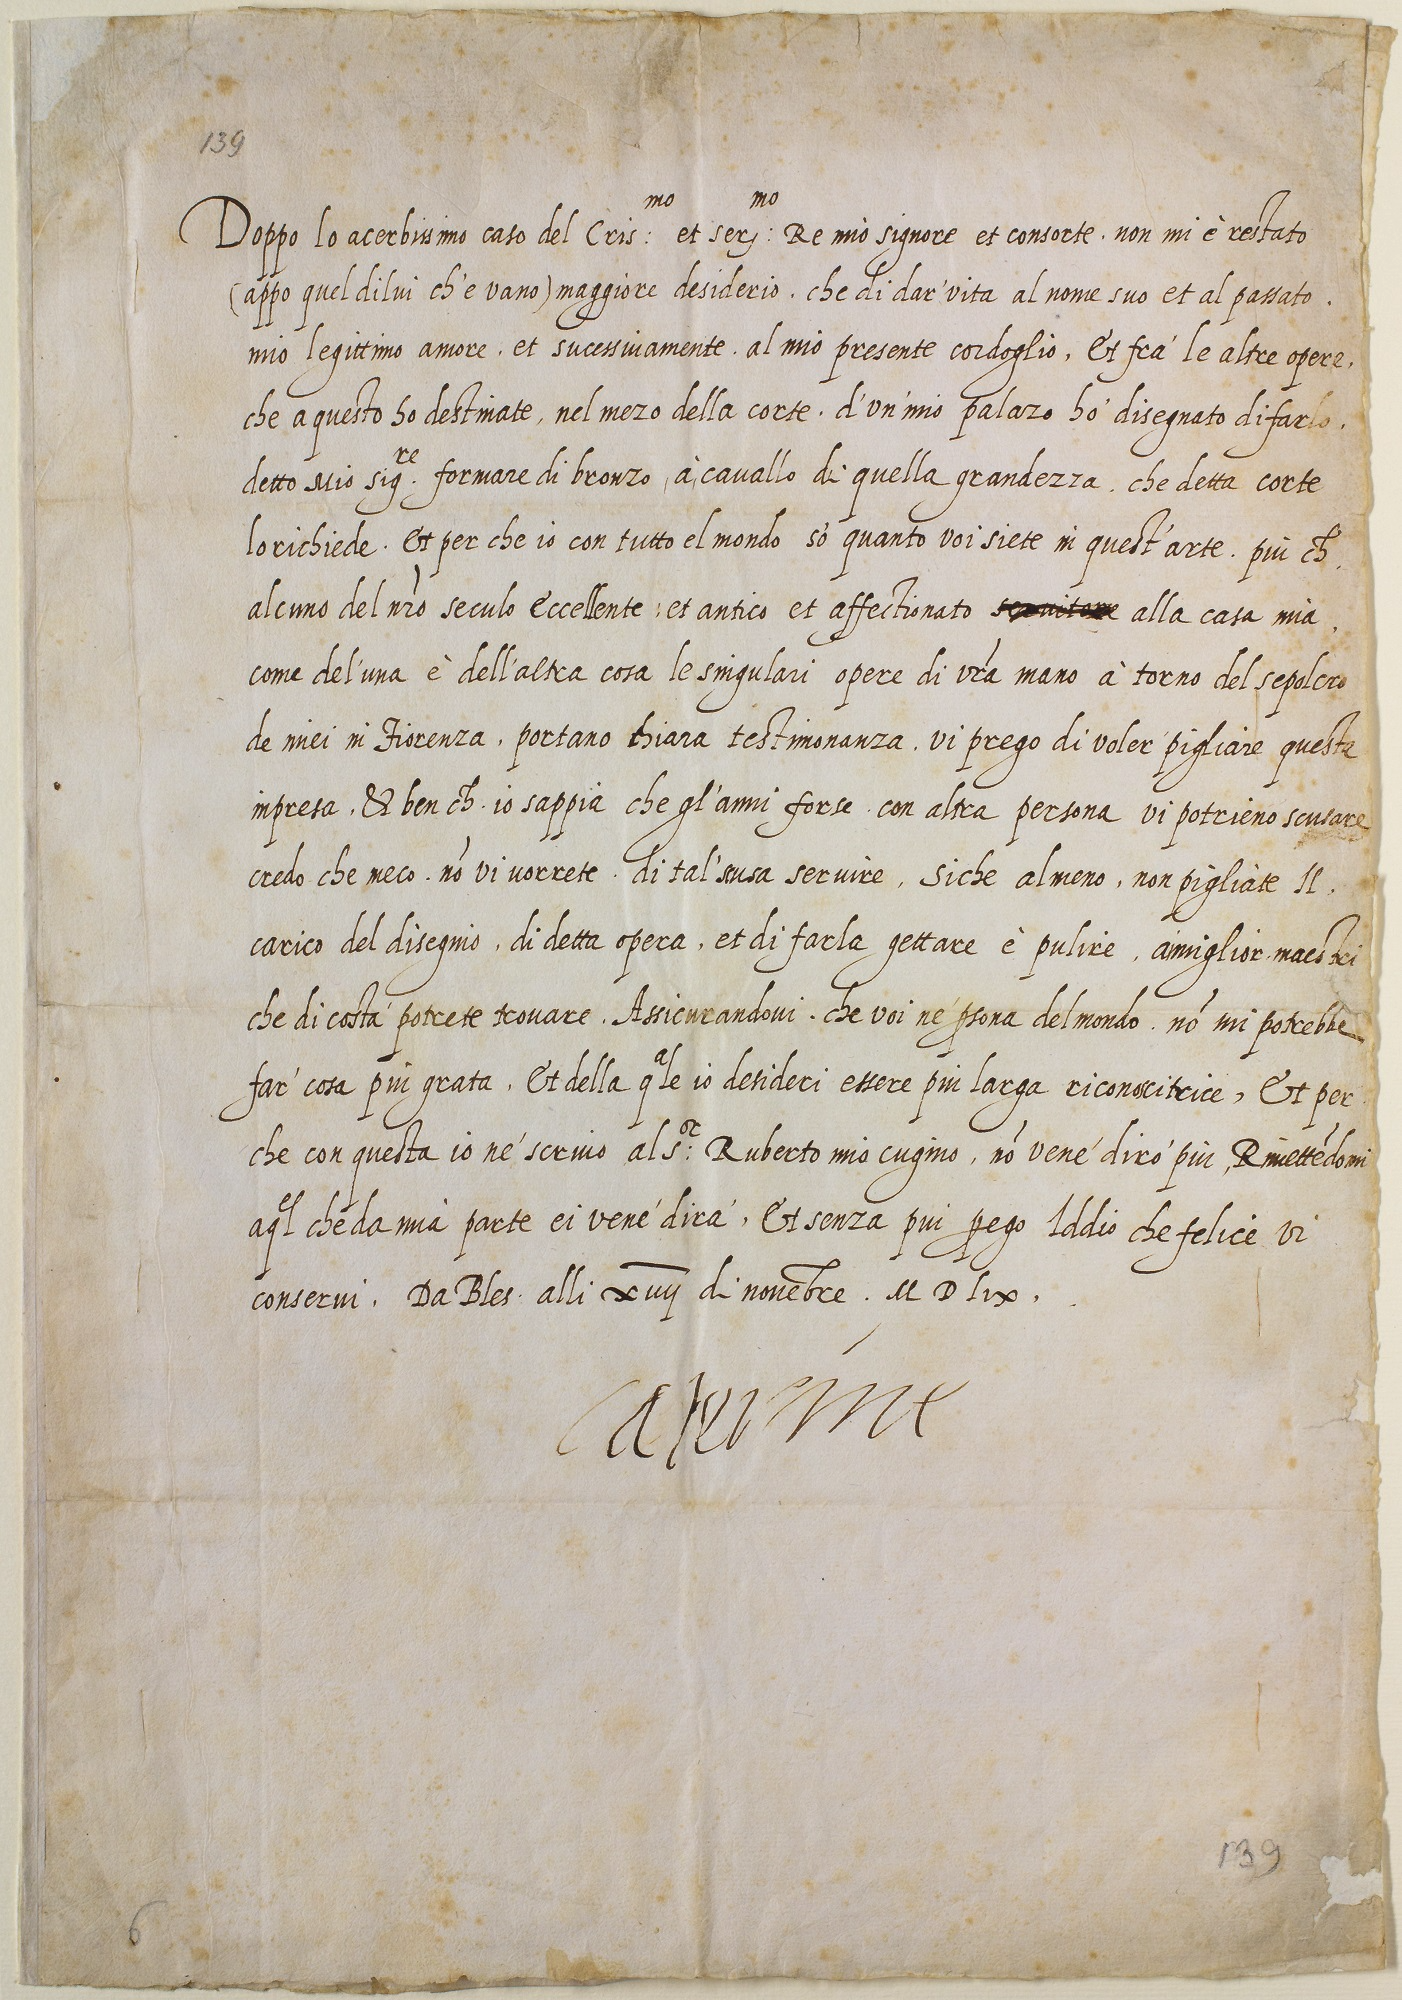 139
Doppo lo acerbissimo caso del Cris:mo et ser:mo Re mio signore et consorte. non mi è restato
(appo quel di lui ch'è vano) maggiore desiderio. che di dar' vita al nome suo et al passato.
mio legittimo amore. et sucessivamente. al mio presente cordoglio, Et fra' le altre opere.
che a questo ho destinate, nel mezo della corte. d'un'mio palazo ho' disegnato di farlo.
detto Mio sig.re formare di bronzo, à cavallo di quella grandezza. che detta corte
lo richiede. Et per che io con tutto el mondo so' quanto voi siete in quest'arte. piu ch.
alcuno del nr̃o seculo Eccellente, et antico et affectionato servitore alla casa mia,
come del'una è dell'altra cosa le singulari opere di vr̃a mano à torno del sepolcro
de miei in Fiorenza, portano chiara testimonanza. vi prego di voler' pigliare questa
inpresa, & ben ch. io sappia che gl'anni forse con altra persona vi potrieno scusare
credo che meco. nõ vi vorrete. di tal' scusa servire, siche al meno, non pigliate Il.
carico del disegnio, di detta opera, et di farla gettare è pulire, a miglior maestri
che di costa' potrete trovare. Assicurandovi. che voi ne' p̱sona del mondo. nõ mi potrebbe
far' cosa piu grata, Et della q.ale io desideri essere piu larga riconoscitrice, Et per
che con questa io ne' scrivo al S.or: Ruberto mio cugino, nõ vene' diro' piu, Rimettẽdomi
a q.el che da mia parte ei vene' dira', Et senza piu p̱ego Iddio che felice vi
conservi, Da Bles. alli xiiij di novẽbre. M D lix,
Caterine
139
6